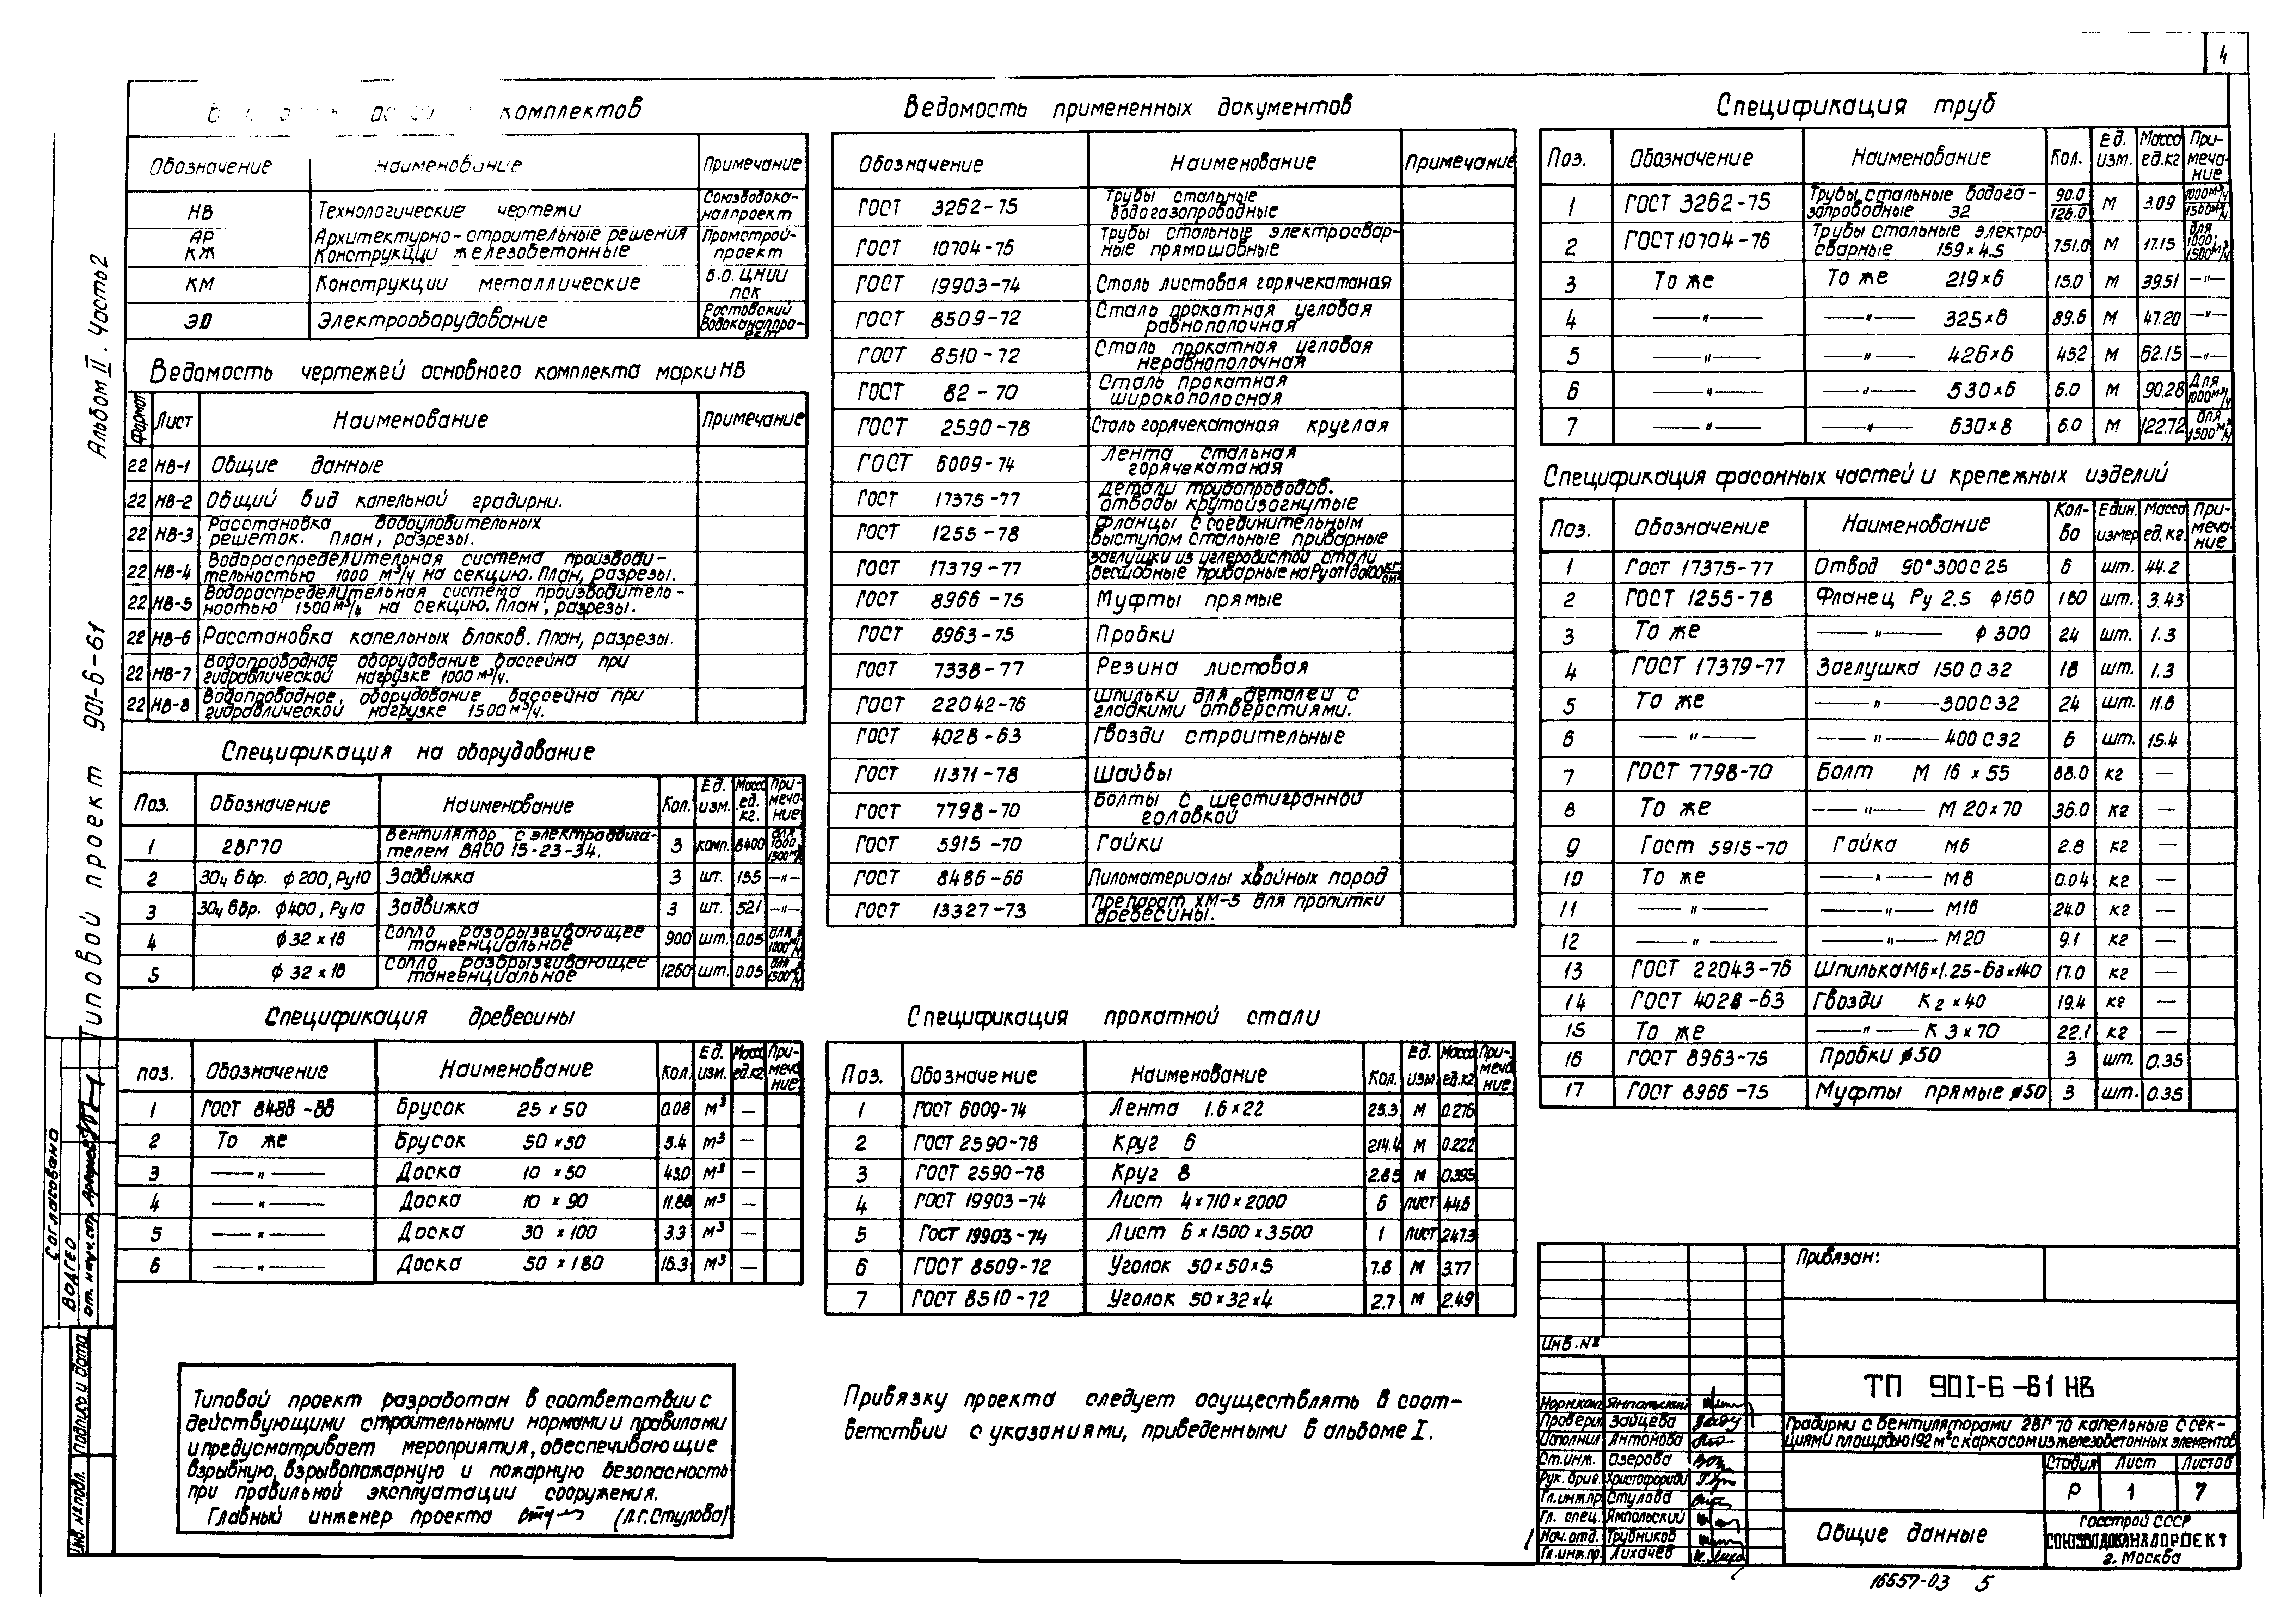 4
комплектов
Обозначение Наименование Примечание
НВ Технологические чертежи Союзводока-
налпроект
АР Архитектурно-строительные решения Промстрой-
КЖ Конструкции железобетонные проект
КМ Конструкции металлические Б.О. ЦНИИ
ПСК
ЭО Электрооборудование Ростовский
Водоканалпро-
ект
Ведомость чертежей основного комплекта марки НВ
Формат Лист Наименование Примечание
22 НВ-1 Общие данные
22 НВ-2 Общий вид капельной градирни.
22 НВ-3 Расстановка водоуловительных
решеток. План, разрезы.
22 НВ-4 Водораспределительная система производи-
тельностью 1000 м³/ч на секцию. План, разрезы.
22 НВ-5 Водораспределительная система производитель-
ностью 1500 м³/ч на секцию. План, разрезы.
22 НВ-6 Расстановка капельных блоков. План, разрезы.
22 НВ-7 Водопроводное оборудование бассейна при
гидравлической нагрузке 1000 м³/ч.
22 НВ-8 Водопроводное оборудование бассейна при
гидравлической нагрузке 1500 м³/ч.
Спецификация на оборудование
Поз. Обозначение Наименование Кол. Ед. изм. Масса ед. кг. При-меча-ние
1 2ВГ70 Вентилятор с электродвига-
телем ВАСО 15-23-34. 3 комп. 8400 для 1000 1500 м³/ч
2 30ч 6бр. ф200, Ру10 Задвижка 3 шт. 195 —"—
3 30ч 6бр. ф400, Ру10 Задвижка 3 шт. 521 —"—
4 ф 32 × 16 Сопло разбрызгивающее
тангенциальное 900 шт. 0.05 для 1000 м³/ч
5 ф 32 × 16 Сопло разбрызгивающее
тангенциальное 1260 шт. 0.05 для 1500 м³/ч
Спецификация древесины
поз. Обозначение Наименование Кол. Ед. изм. Масса ед.кг При-меча-ние
1 ГОСТ 8486-66 Брусок 25 × 50 0.08 м³ —
2 То же Брусок 50 × 50 5.4 м³ —
3 —"— Доска 10 × 50 43.0 м³ —
4 —"— Доска 10 × 90 11.88 м³ —
5 —"— Доска 30 × 100 3.3 м³ —
6 —"— Доска 50 × 180 16.3 м³ —
Типовой проект разработан в соответствии с
действующими строительными нормами и правилами
и предусматривает мероприятия, обеспечивающие
взрывную, взрывопожарную и пожарную безопасность
при правильной эксплуатации сооружения.
Главный инженер проекта (Л.Г. Стулова)
Ведомость примененных документов
Обозначение Наименование Примечание
ГОСТ 3262-75 Трубы стальные
водогазопроводные
ГОСТ 10704-76 Трубы стальные электросвар-
ные прямошовные
ГОСТ 19903-74 Сталь листовая горячекатаная
ГОСТ 8509-72 Сталь прокатная угловая
равнополочная
ГОСТ 8510-72 Сталь прокатная угловая
неравнополочная
ГОСТ 82-70 Сталь прокатная
широкополосная
ГОСТ 2590-78 Сталь горячекатаная круглая
ГОСТ 6009-74 Лента стальная
горячекатаная
ГОСТ 17375-77 Детали трубопроводов.
отводы крутоизогнутые
ГОСТ 1255-78 Фланцы с соединительным
выступом стальные приварные
ГОСТ 17379-77 Заглушки из углеродистой стали
бесшовные приварные на Ру от 1 до 100 кгс/см²
ГОСТ 8966-75 Муфты прямые
ГОСТ 8963-75 Пробки
ГОСТ 7338-77 Резина листовая
ГОСТ 22042-76 Шпильки для деталей с
гладкими отверстиями.
ГОСТ 4028-63 Гвозди строительные
ГОСТ 11371-78 Шайбы
ГОСТ 7798-70 Болты с шестигранной
головкой
ГОСТ 5915-70 Гайки
ГОСТ 8486-66 Пиломатериалы хвойных пород
ГОСТ 13327-73 Препарат ХМ-5 для пропитки
древесины.
Спецификация прокатной стали
Поз. Обозначение Наименование Кол. Ед. изм. Масса ед.кг При-меча-ние
1 ГОСТ 6009-74 Лента 1.6×22 25.3 м 0.276
2 ГОСТ 2590-78 Круг 6 214.4 м 0.222
3 ГОСТ 2590-78 Круг 8 2.85 м 0.395
4 ГОСТ 19903-74 Лист 4×710×2000 6 лист 44.6
5 ГОСТ 19903-74 Лист 6×1500×3500 1 лист 247.3
6 ГОСТ 8509-72 Уголок 50×50×5 7.8 м 3.77
7 ГОСТ 8510-72 Уголок 50×32×4 2.7 м 2.49
Привязку проекта следует осуществлять в соот-
ветствии с указаниями, приведенными в альбоме I.
Спецификация труб
Поз. Обозначение Наименование Кол. Ед. изм. Масса ед.кг При-меча-ние
1 ГОСТ 3262-75 Трубы стальные водога-
зопроводные 32 90.0 126.0 м 3.09 1000 м³/ч 1500 м³/ч
2 ГОСТ 10704-76 Трубы стальные электро-
сварные 159×4.5 751.0 м 17.15 для 1000, 1500 м³/ч
3 То же То же 219×6 15.0 м 39.51 —"—
4 —"— —"— 325×6 89.6 м 47.20 —"—
5 —"— —"— 426×6 45.2 м 62.15 —"—
6 —"— —"— 530×6 6.0 м 90.28 Для 1000 м³/ч
7 —"— —"— 630×8 6.0 м 122.72 для 1500 м³/ч
Спецификация фасонных частей и крепежных изделий
Поз. Обозначение Наименование Кол-во Един. измер. Масса ед.кг. При-меча-ние
1 ГОСТ 17375-77 Отвод 90°300С25 6 шт. 44.2
2 ГОСТ 1255-78 Фланец Ру 2.5 ф150 180 шт. 3.43
3 То же —"— ф 300 24 шт. 1.3
4 ГОСТ 17379-77 Заглушка 150 С 32 18 шт. 1.3
5 То же —"— 300С32 24 шт. 11.8
6 —"— —"— 400С32 6 шт. 15.4
7 ГОСТ 7798-70 Болт М 16 × 55 88.0 кг —
8 То же —"— М 20×70 36.0 кг —
9 Гост 5915-70 Гайка М6 2.8 кг —
10 То же —"— М8 0.04 кг —
11 —"— —"— М16 24.0 кг —
12 —"— —"— М20 9.1 кг —
13 ГОСТ 22043-76 Шпилька М6×1.25-6а×140 17.0 кг —
14 ГОСТ 4028-63 Гвозди К 2×40 19.4 кг —
15 То же —"— К 3×70 22.1 кг —
16 ГОСТ 8963-75 Пробки ф50 3 шт. 0.35
17 ГОСТ 8966-75 Муфты прямые ф50 3 шт. 0.35
Привязан:
Инв.№
ТП 901-6-61 НВ
Норм.кон. Ямпольский
Проверил Зайцева
Исполнил Антонова
Ст.инж. Озерова
Рук. бриг.
Гл.инж.пр Стулова
Гл. спец. Ямпольский
Нач.отд. Трубников
Гл.инж.пр. Лихачев
Градирни с вентиляторами 2ВГ 70 капельные с сек-
циями площадью 192 м² с каркасом из железобетонных элементов
Стадия Лист Листов
Р 1 7
Общие данные
Госстрой СССР
СОЮЗВОДОКАНАЛПРОЕКТ
г. Москва
16557-03 5
Альбом II. Часть 2
Типовой проект 901-6-61
Согласовано
ВОДГЕО
Подпись и дата
Инв. № подл.